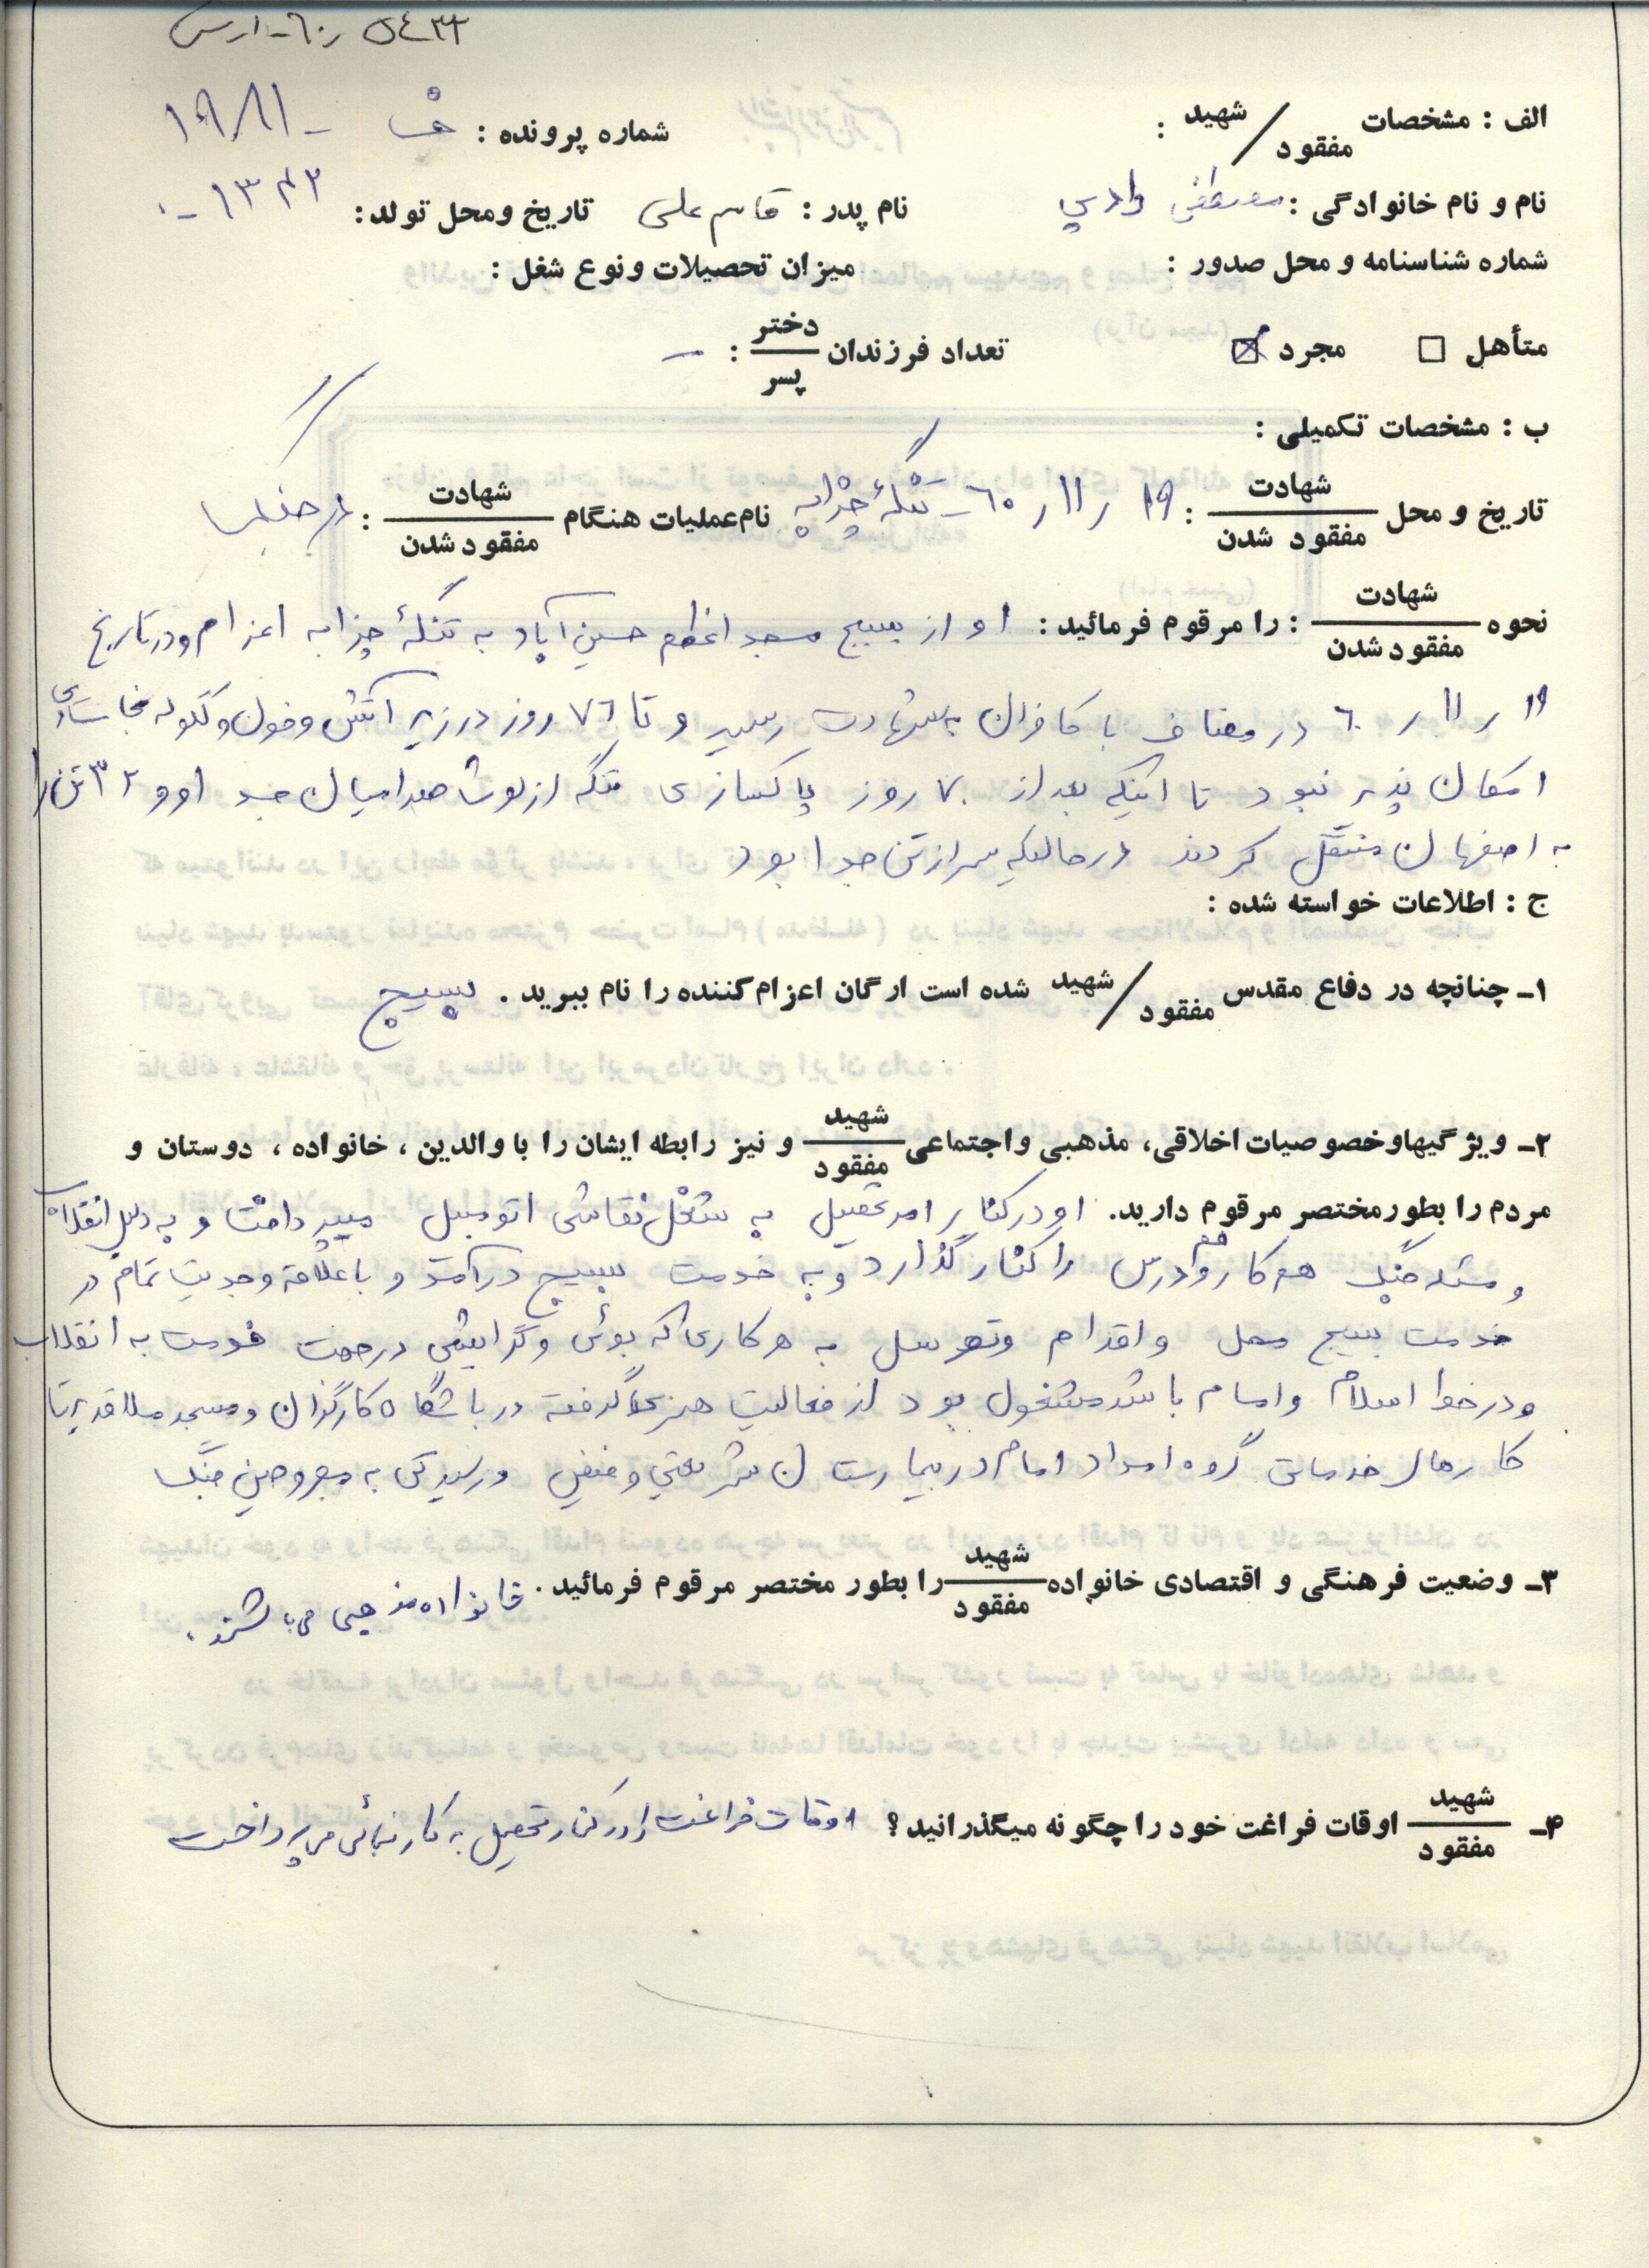 الف : مشخصات شهید / مفقود :
شماره پرونده : ۱۹۸۱۱ -
نام و نام خانوادگی : مصطفی نام پدر : قاسم علی تاریخ ومحل تولد : ۱۳۴۲ -
شماره شناسنامه و محل صدور : میزان تحصیلات ونوع شغل :
متأهل □ مجرد ☒ تعداد فرزندان دختر / پسر : –
ب : مشخصات تکمیلی :
تاریخ و محل شهادت / مفقود شدن : ۱۹ ر ۱۱ ر ٦٠ - تنگهٔ چزابه نام عملیات هنگام شهادت / مفقود شدن :
نحوه شهادت / مفقود شدن : را مرقوم فرمائید : او از بسیج مسجد اعظم حسین آباد به تنگهٔ چزابه اعزام ودر تاریخ
۱۹ ر ۱۱ ر ٦٠ در مصاف با کافران به شهادت رسید و تا ۷٦ روز در زیر آتش وخون و گلوله
امکان پذیر نبود تا اینکه بعد از ۷۰ روز پاکسازی تنگه از لوث صدامیان جسد او و ۳۲ تن را
به اصفهان منتقل کردند در حالیکه سر از تن جدا بود
ج : اطلاعات خواسته شده :
۱ـ چنانچه در دفاع مقدس شهید / مفقود شده است ارگان اعزام کننده را نام ببرید . بسیج
۲ـ ویژگیهاوخصوصیات اخلاقی، مذهبی واجتماعی شهید / مفقود و نیز رابطه ایشان را با والدین ، خانواده ، دوستان و
مردم را بطورمختصر مرقوم دارید. او در کنار امر تحصیل به شغل نقاشی اتومبیل میپرداخت و به دلیل انقلاب
و مسئله جنگ هم کار و هم درس را کنار گذارد و به خدمت بسیج درآمد و با علاقه وجدیت تمام در
خدمت بسیج محل واقدام وتوسل به هر کاری که بوئی وگرایشی در جهت خدمت به انقلاب
و در خط اسلام وامام باشد مشغول بود از فعالیت هنری گرفته در باشگاه کارگران و مسجد تا
کارهای خدماتی گروه امداد امام در بیمارستان شریعتی و ورسیدگی به مجروحین جنگ
۳ـ وضعیت فرهنگی و اقتصادی خانواده شهید / مفقود را بطور مختصر مرقوم فرمائید . خانواده مذهبی می باشند .
۴ـ شهید / مفقود اوقات فراغت خود را چگونه میگذرانید ؟ اوقات فراغت را در کنار تحصیل به کار می پرداخت